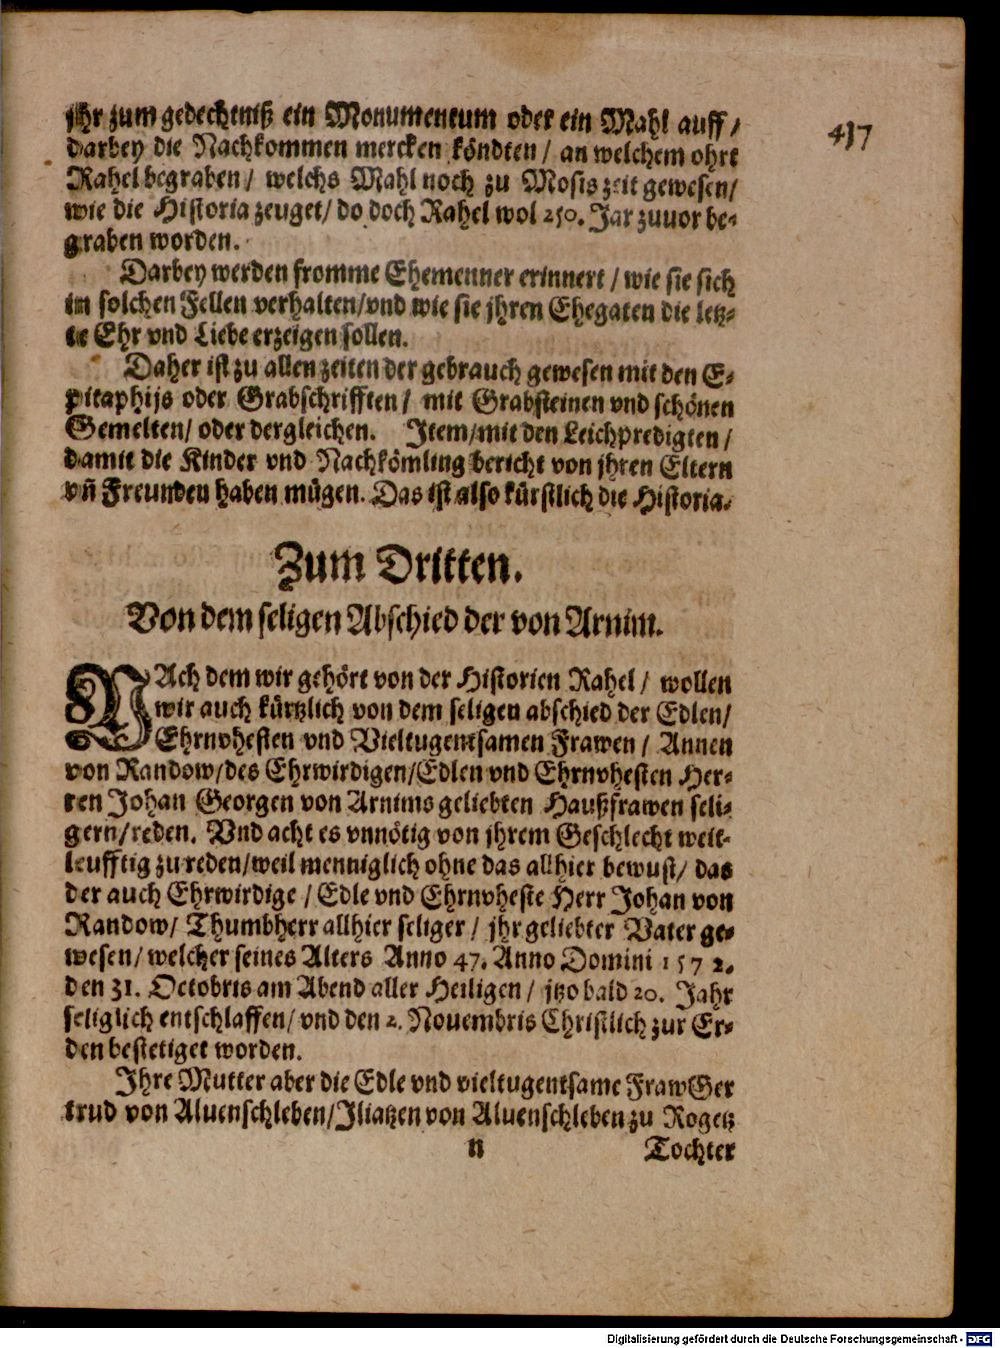 jhr zum gedechtniß ein Monumentum oder ein Mahl auff /
417
darbey die Nachkommen mercken köndten / an welchem ohrt
Rahel begraben / welchs Mahl noch zu Mosis zeit gewesen /
wie die Historia zeuget / do doch Rahel wol 250. Jar zuuor be-
graben worden.
Darbey werden fromme Ehemenner erinnert / wie sie sich
in solchen Fellen verhalten / vnd wie sie jhren Ehegaten die letz-
te Ehr vnd Liebe erzeigen sollen.
Daher ist zu allen zeiten der gebrauch gewesen mit den E-
pitaphijs oder Grabschrifften / mit Grabsteinen vnd schönen
Gemelten / oder dergleichen. Item / mit den Leichpredigten /
damit die Kinder vnd Nachkömling bericht von jhren Eltern
vñ Freunden haben mügen. Das ist also kürstlich die Historia.
Zum Dritten.
Von dem seligen Abschied der von Arnim.
NAch dem wir gehört von der Historien Rahel / wollen
wir auch kürtzlich von dem seligen abschied der Edlen /
Ehrnvhesten vnd Vieltugentsamen Frawen / Annen
von Randow / des Ehrwirdigen / Edlen vnd Ehrnvhesten Her-
ren Johan Georgen von Arnims geliebten Haußfrawen seli-
gern / reden. Vnd acht es vnnötig von jhrem Geschlecht weit-
leufftig zu reden / weil menniglich ohne das allhier bewust / das
der auch Ehrwirdige / Edle vnd Ehrnvheste Herr Johan von
Randow / Thumbherr allhier seliger / jhr geliebter Vater ge-
wesen / welcher seines Alters Anno 47. Anno Domini 1572.
den 31. Octobris am Abend aller Heiligen / jtzo bald 20. Jahr
seliglich entschlaffen / vnd den 2. Nouembris Christlich zur Er-
den bestetiget worden.
Jhre Mutter aber die Edle vnd vieltugentsame Fraw Ger
trud von Aluenschleben / Jliatzen von Aluenschleben zu Rogetz
n Tochter
Digitalisierung gefördert durch die Deutsche Forschungsgemeinschaft - DFG